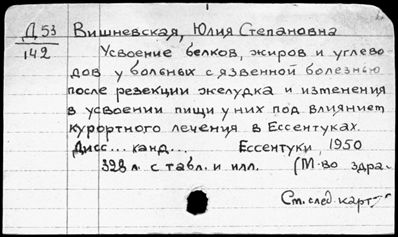 Д 53 Вишневская, Юлия Степановна
142
Усвоение белков, жиров и углево-
дов у больных с язвенной болезнью
после резекции желудка и изменения
в усвоении пищи у них под влиянием
курортного лечения в Ессентуках.
Дисс... канд... Ессентуки, 1950
328 л. с табл. и илл. (М-во здра-
См. след. карт.